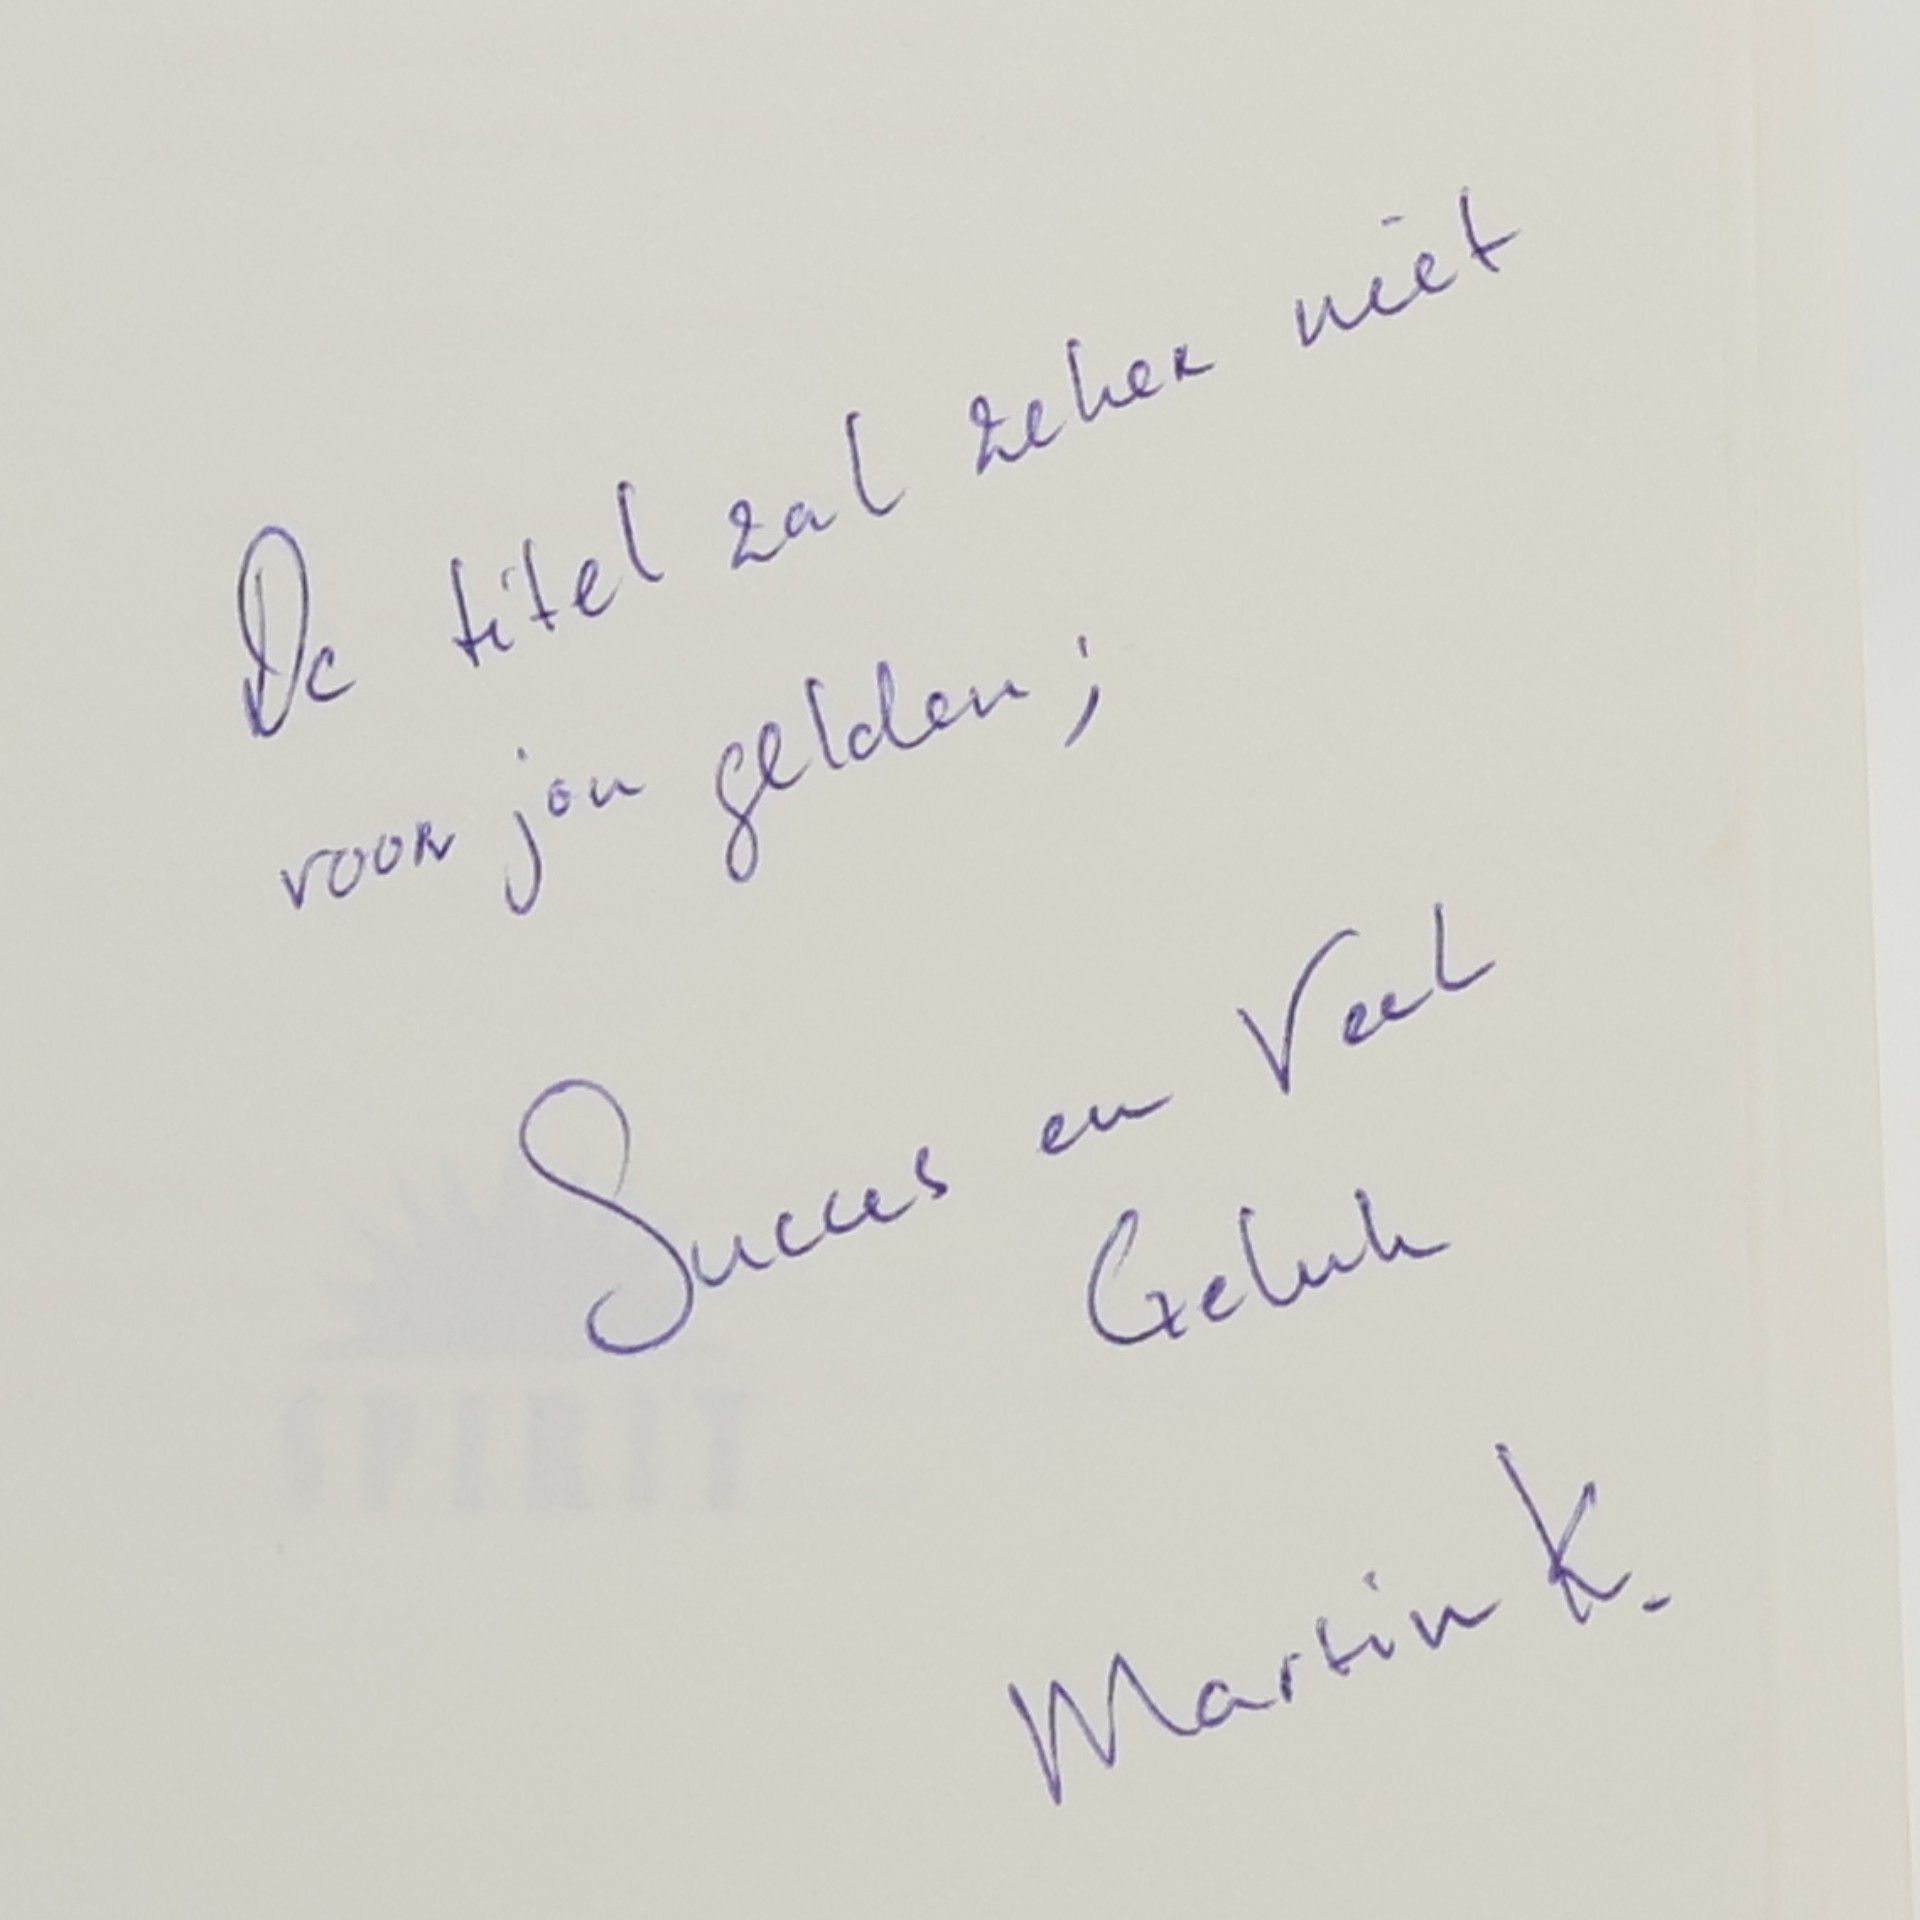 De titel zal zeker niet
voor jou gelden;
Succes en Veel
Geluk
SPIRIT
Martin K.